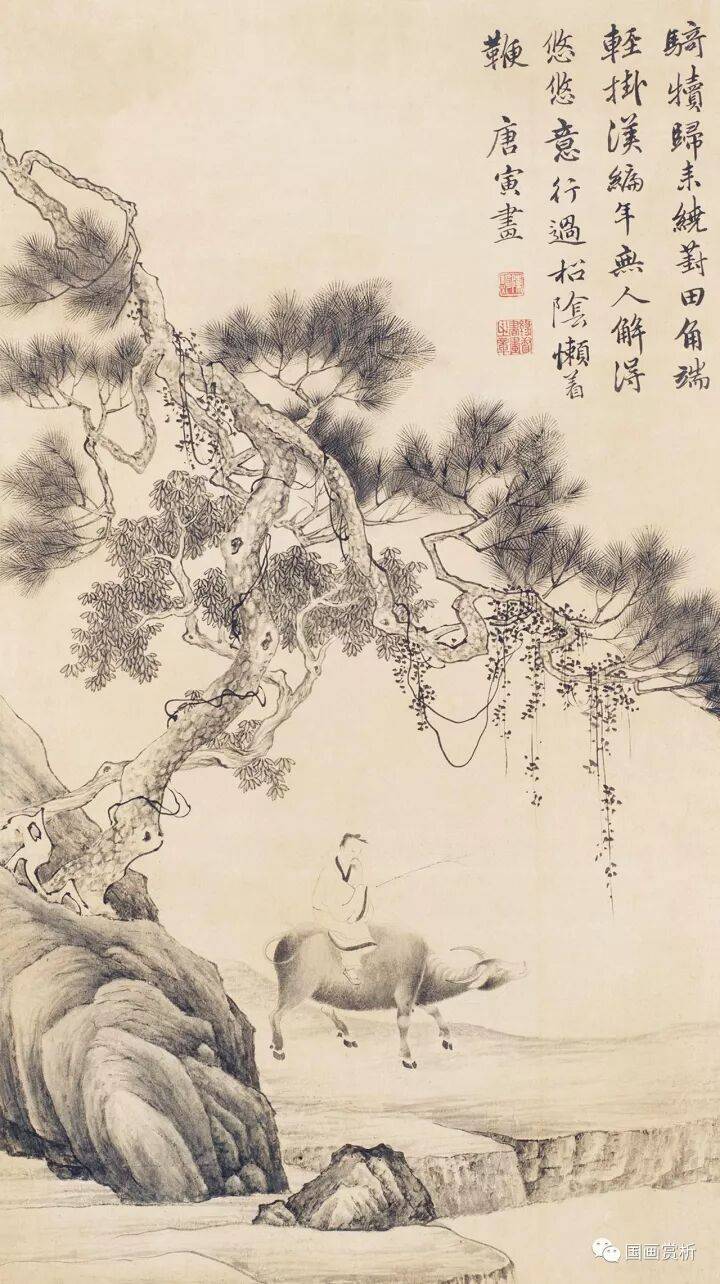 騎犢歸来繞葑田角端
輕掛漢編年無人解得
悠悠意行過松陰懶着
鞭 唐寅畫
国画赏析